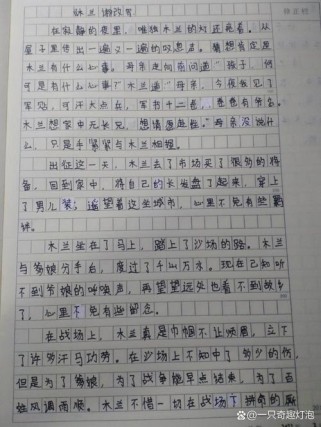 木兰诗改写
在寂静的夜里，唯独木兰的灯还亮着。从
屋子里传出一遍又一遍的叹息声。猜想肯定是
木兰有什么心事。母亲走向前问道“孩子，何
可是有什么心事？”木兰道“母亲，今夜我见了
军贴，可汗大点兵，军书十二卷，卷卷有爷名。
木兰想家中无长兄，想请愿替征。”母亲没说什
么，只是手紧紧与木兰相握。
出征这一天，木兰去了市场买了很多的装
备，回到家中，将自己的长发盘了起来，穿上
了男儿装；遥望着这坐城市，心里不免有些
木兰坐在了马上，踏上了沙场的路。木兰
与爷娘分手后，度过了千山万水。现在已知听
不到爷娘的呼唤声，再望望远处也看不到故乡
了，心里不免有些留恋。
在战场上，木兰真是巾帼不让须眉，立下
了许多汗马功劳。在沙场上不知中了多少的伤，
但是为了爷娘，为了战争能早点结束，为了百
姓风调雨顺。木兰不惜一切在战场了拼命的厮
@一只奇趣灯泡